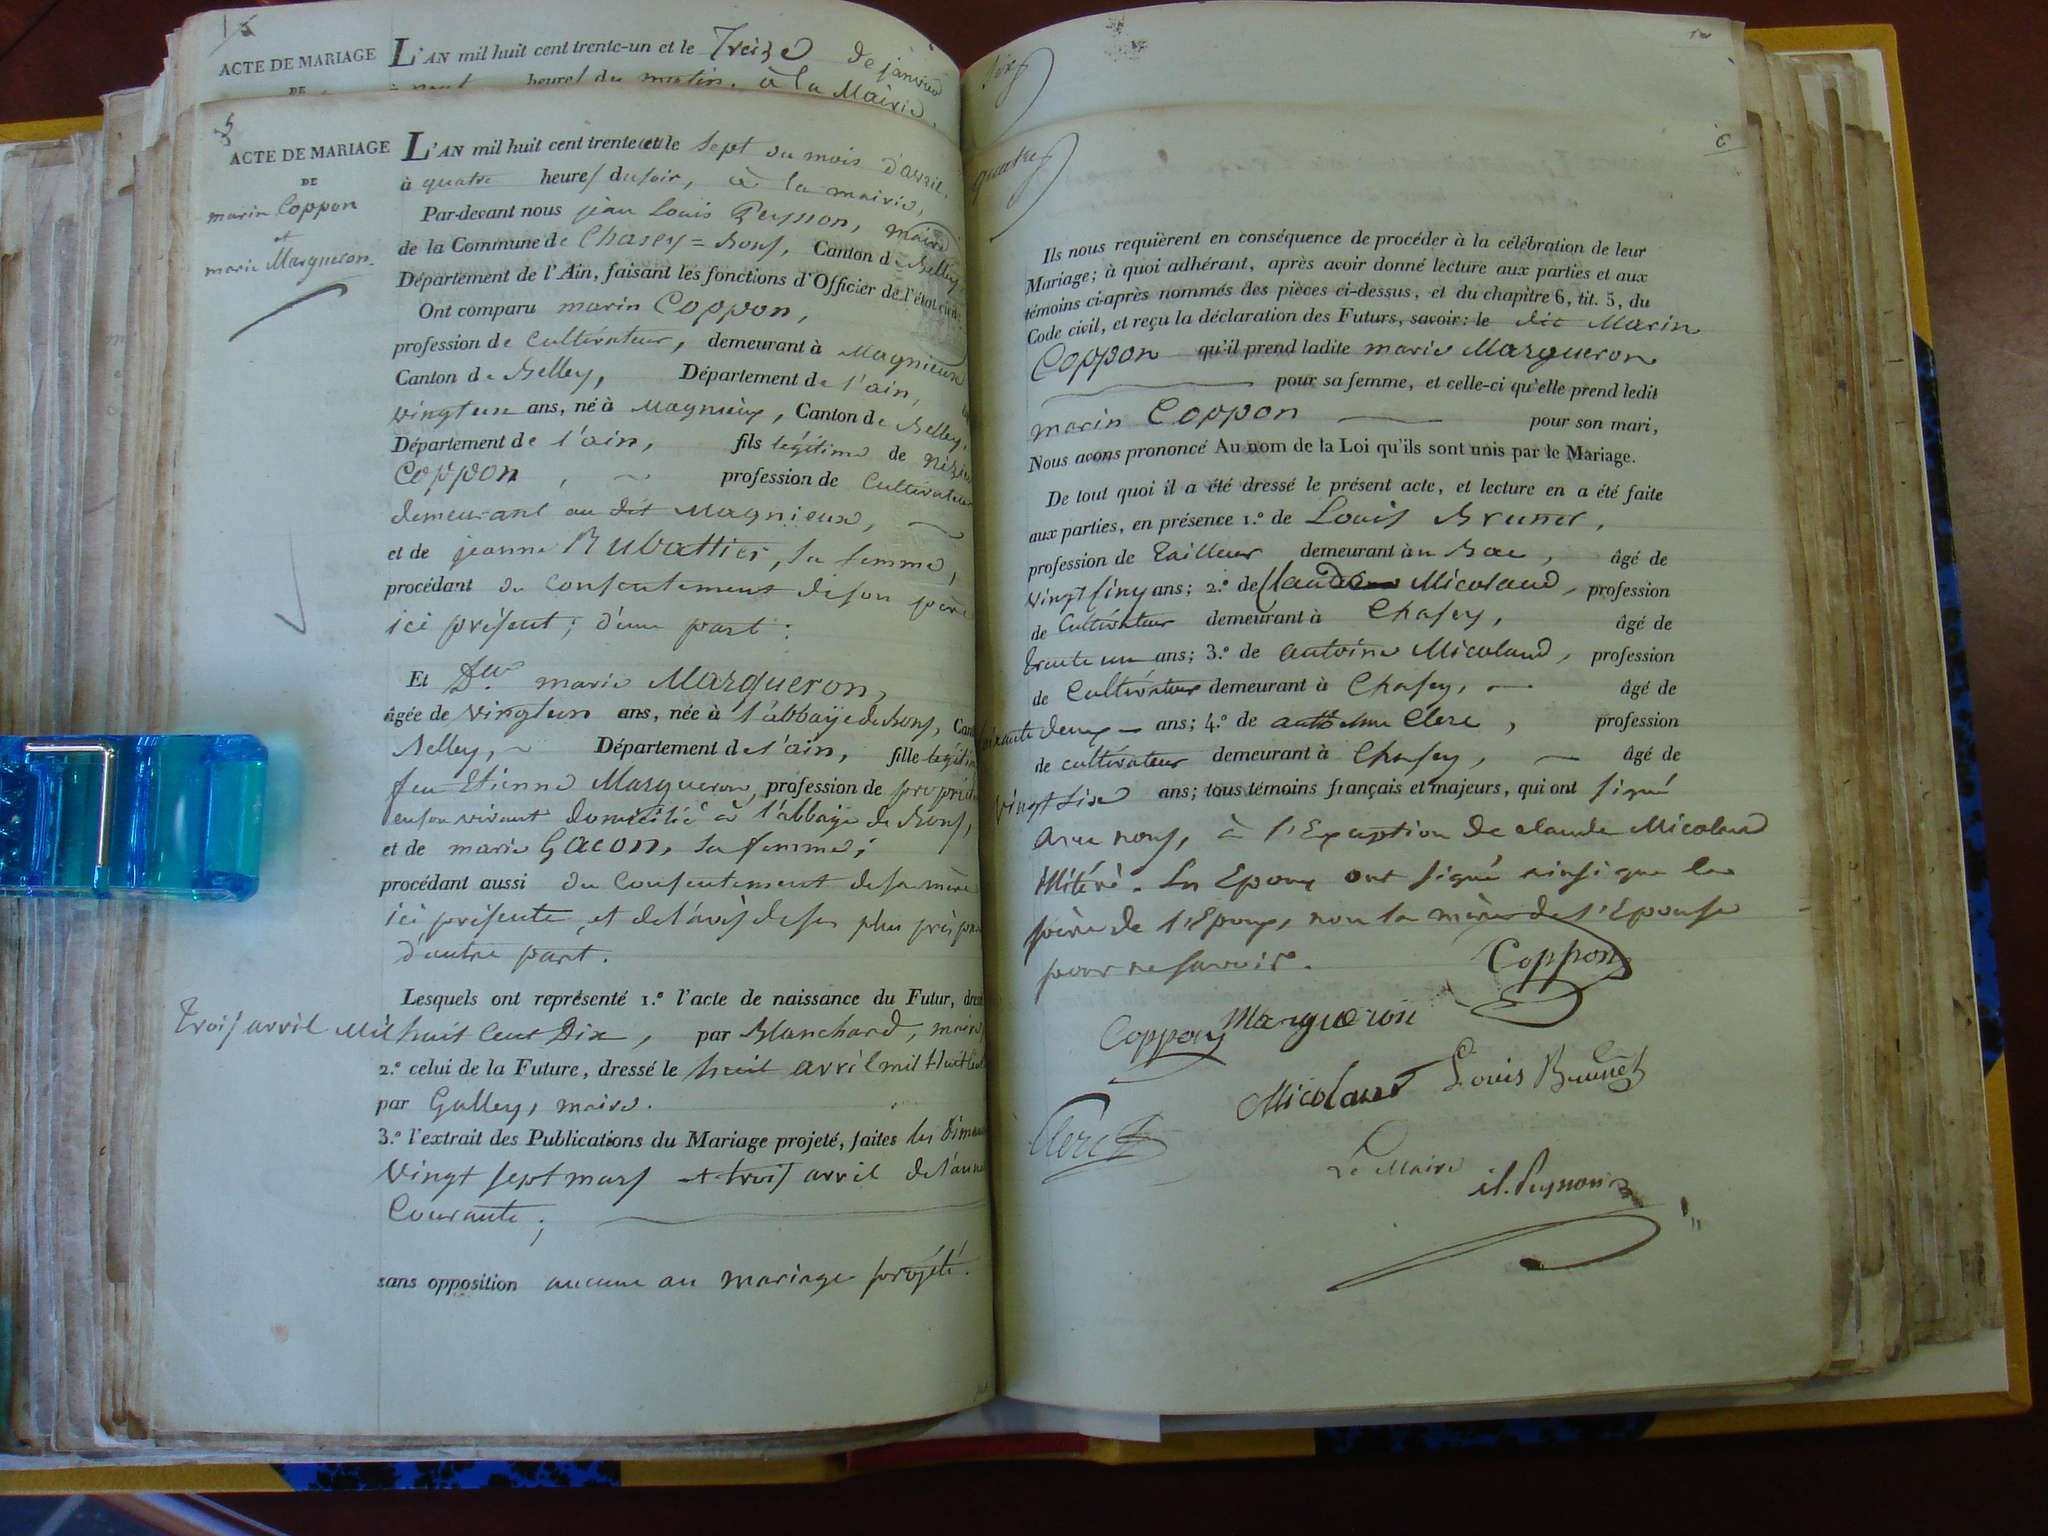 15
ACTE DE MARIAGE
DE
L'AN mil huit cent trente-un et le Treize de janvier
heures du matin, à la Mairie,
ACTE DE MARIAGE
DE
marin Coppon
et
marie Margueron
L'AN mil huit cent trente et le sept du mois d'avril,
à quatre heures du soir, à la mairie,
Par-devant nous jean Louis Peysson, maire
de la Commune de Chasey = Bons, Canton de Belley
Département de l'Ain, faisant les fonctions d'Officier de l'état civil.
Ont comparu marin Coppon,
profession de Cultivateur, demeurant à Magnieux
Canton de Belley, Département de l'ain,
vingt un ans, né à Magnieux, Canton de Belley,
Département de l'ain, fils légitime de
Coppon, profession de Cultivateur
demeurant au dit Magnieux,
et de jeanne Rubattier, sa femme,
procédant du Consentement de son père
ici présent; d'une part:
Et Dlle marie Margueron,
âgée de vingt un ans, née à l'abbaÿe de Bons, Can
Belley, Département de l'ain, fille légitime
feu Etienne Margueron, profession de proprié
en son vivant domicilié à l'abbaÿe de Bons,
et de marie Gacon, sa femme;
procédant aussi du Consentement de sa mère
ici présente, et de l'avis de ses plus près
d'autre part.
Lesquels ont représenté 1.º l'acte de naissance du Futur, dressé
Trois avril Mil huit Cent Dix, par Blanchard, maire,
2.º celui de la Future, dressé le huit avril mil huit Cent
par Gulley, maire.
3.º l'extrait des Publications du Mariage projeté, faites les Diman
Vingt sept mars et trois avril de l'année
Courante;
sans opposition aucune au mariage projété.
dix
quatre
6
Ils nous requièrent en conséquence de procéder à la célébration de leur
Mariage; à quoi adhérant, après avoir donné lecture aux parties et aux
témoins ci-après nommés des pièces ci-dessus, et du chapitre 6, tit. 5, du
Code civil, et reçu la déclaration des Futurs, savoir: le dit Marin
Coppon qu'il prend ladite marie Margueron
pour sa femme, et celle-ci qu'elle prend ledit
marin Coppon pour son mari,
Nous avons prononcé Au nom de la Loi qu'ils sont unis par le Mariage.
De tout quoi il a été dressé le présent acte, et lecture en a été faite
aux parties, en présence 1.º de Louis Brunet,
profession de Tailleur demeurant à Bac, âgé de
vingt sinq ans; 2.º de Claude Micoland, profession
de Cultivateur demeurant à Chasey, âgé de
trente un ans; 3.º de antoine Micoland, profession
de Cultivateur demeurant à Chasey, âgé de
soixante deux ans; 4.º de anthelme Clerc, profession
de cultivateur demeurant à Chasey, âgé de
vingt six ans; tous témoins français et majeurs, qui ont signé
avec nous, à l'Exception de claude Micoland
Illitéré. Les Epoux ont signé ainsi que le
père de l'Epoux, non la mère de l'Epouse
pour ne savoir.
Coppon
Coppon Margueron
Micoland Louis Brunet
Clerc
Le Maire